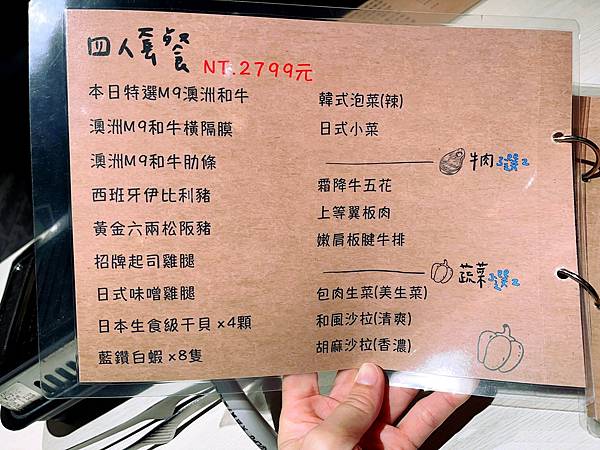 四人套餐 NT.2799元
本日特選M9澳洲和牛
澳洲M9和牛橫隔膜
澳洲M9和牛肋條
西班牙伊比利豬
黃金六兩松阪豬
招牌起司雞腿
日式味噌雞腿
日本生食級干貝 x4顆
藍鑽白蝦 x8隻
韓式泡菜(辣)
日式小菜
牛肉3選2
霜降牛五花
上等翼板肉
嫩肩板腱牛排
蔬菜3選2
包肉生菜(美生菜)
和風沙拉(清爽)
胡麻沙拉(香濃)